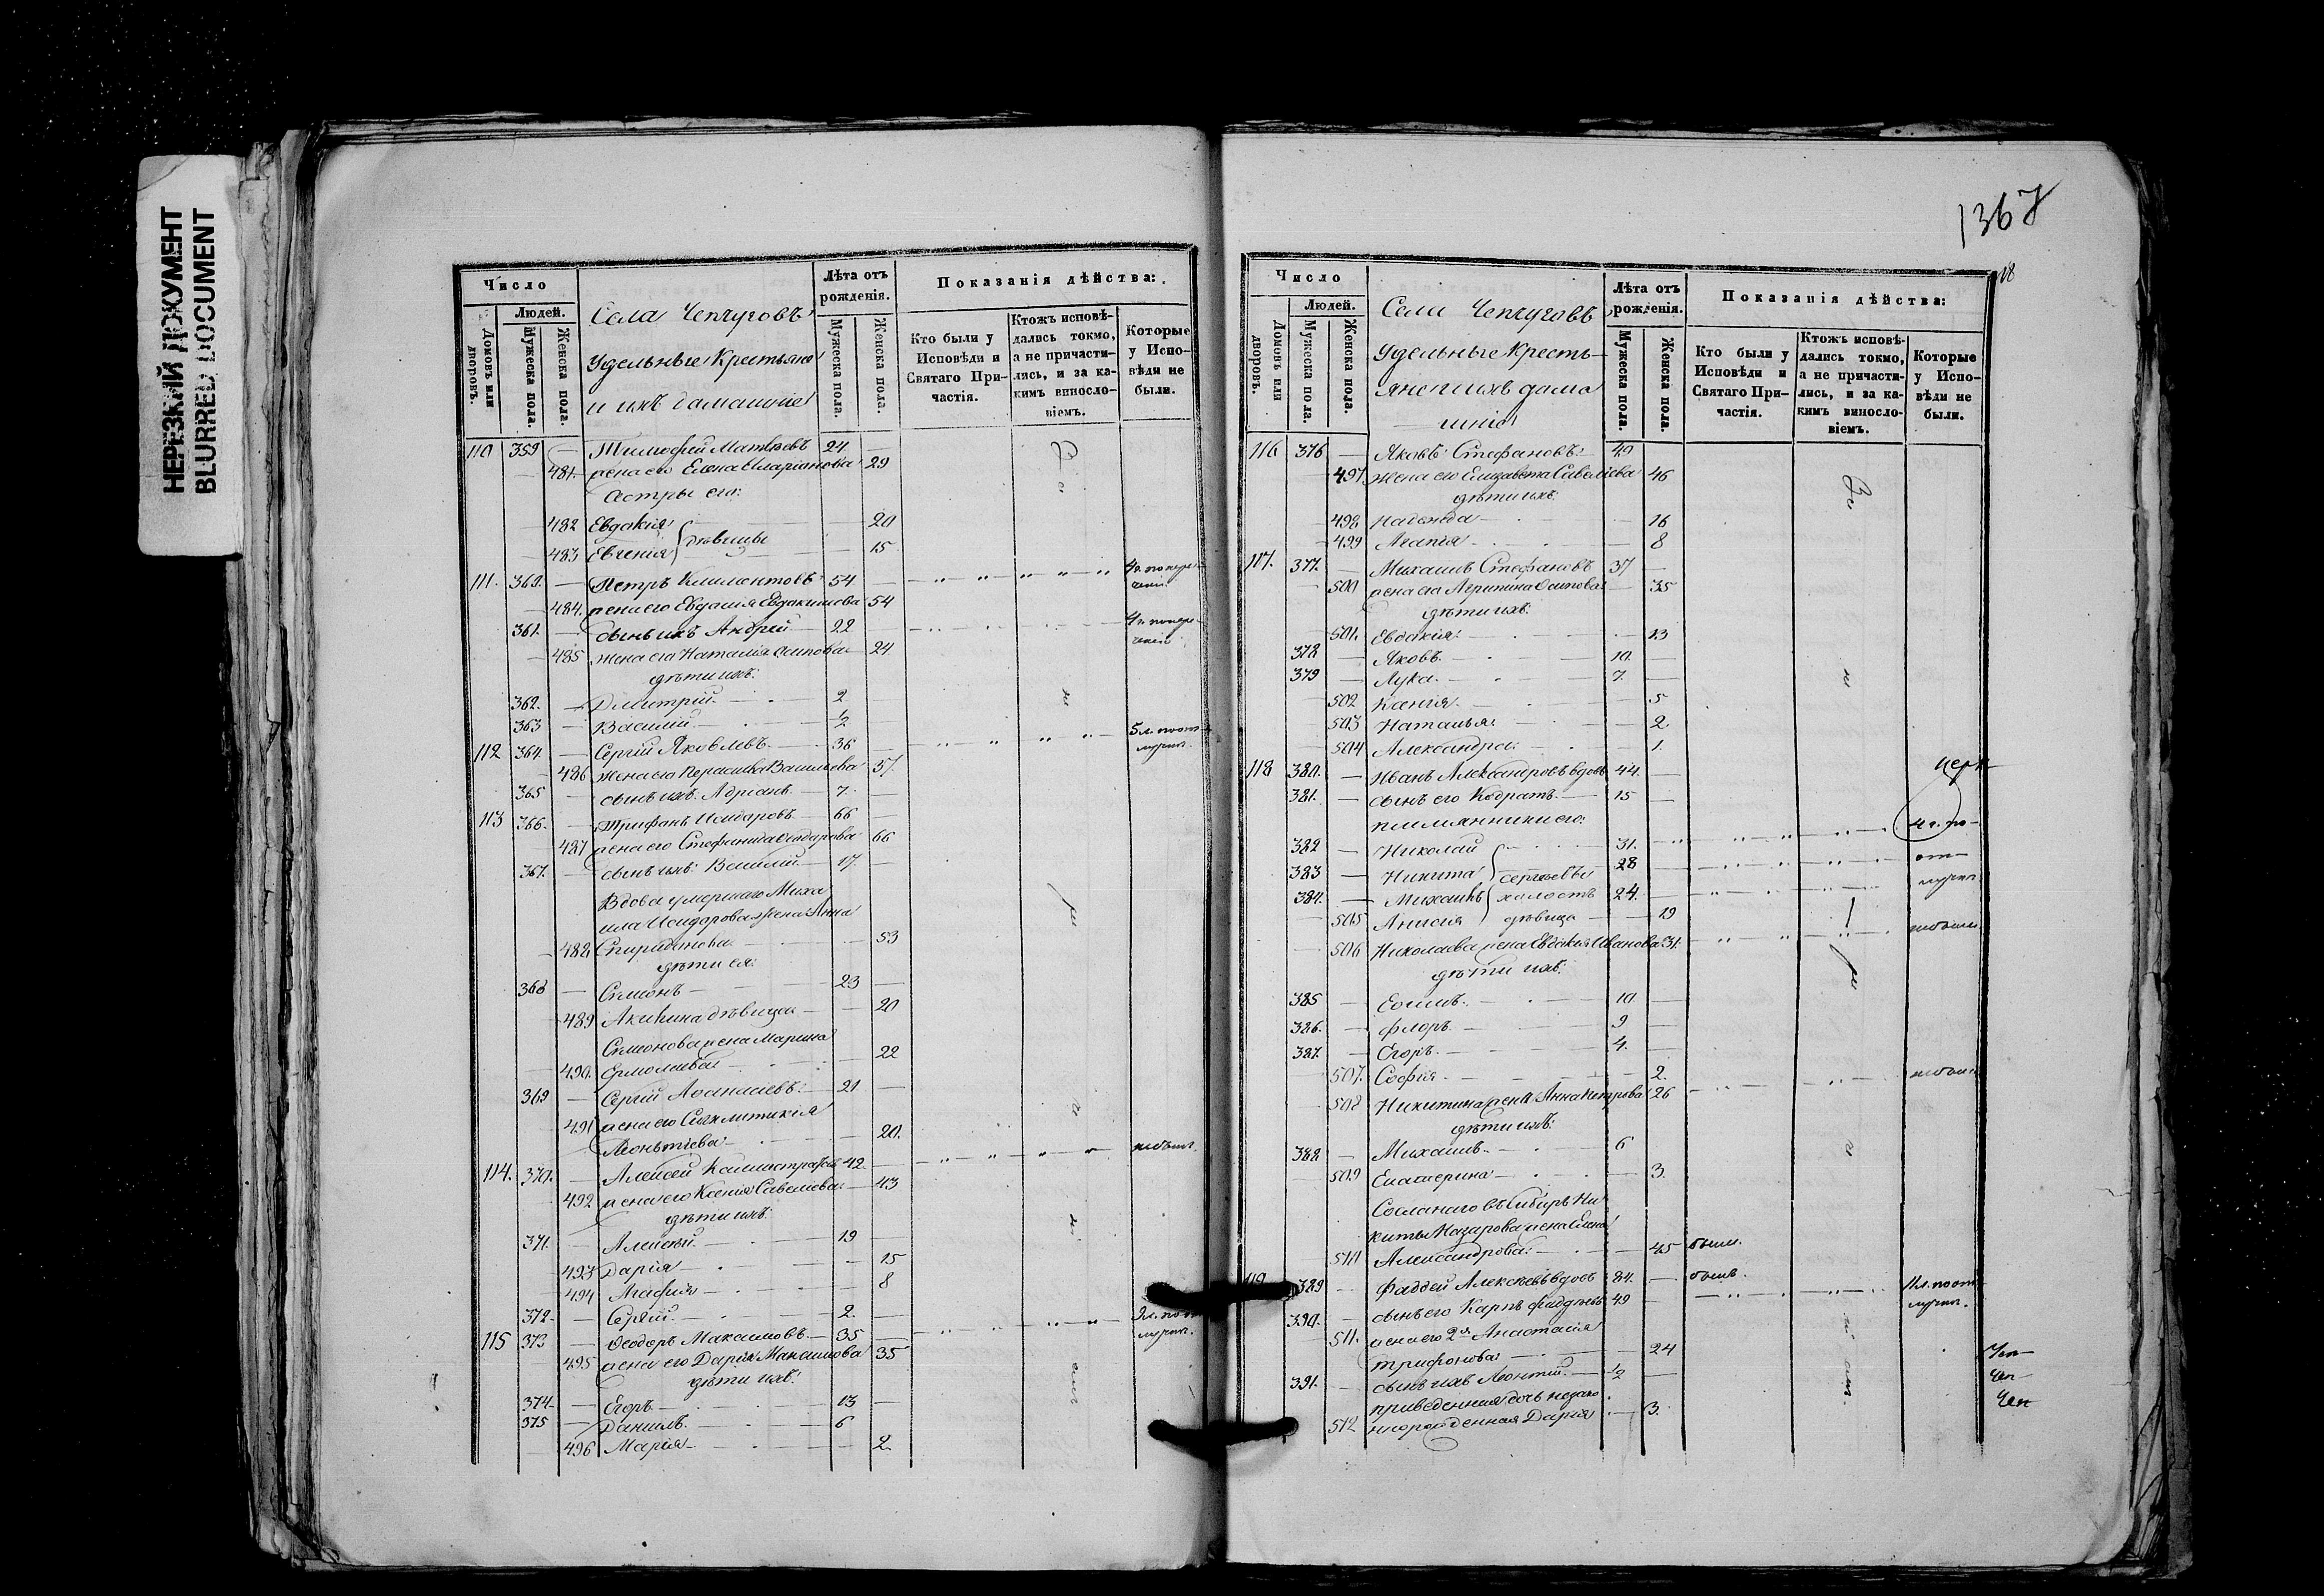 НЕРЕЗКИЙ ДОКУМЕНТ
BLURRED DOCUMENT
Число
Людей.
Домовъ или дворовъ.
Мужеска пола.
Женска пола.
Села Чепчуговъ
Удельные Крестьяне
и ихъ домашніе
Лѣта отъ рожденія.
Мужеска пола.
Женска пола.
Показанія дѣйства:
Кто были у Исповѣди и Святаго При-частія.
Ктожъ исповѣ-дались токмо, а не причасти-лись, и за ка-кимъ винословіемъ.
Которые у Испо-вѣди не были.
110 359 — Тимофей Матвѣевъ 24 —
— 481. жена его Елена Иларіонова 29
сестры его:
— 482 Евдокія — 20
— 483 Евгенія дѣвицы — 15
111. 360. — Петръ Климентовъ 54 —
— 484. жена его Евдокія Евдокимова 54
361. — сынъ ихъ Андрей — 22
— 485 жена его Наталія Осипова — 24
дѣти ихъ:
362. — Димитрій — 2
363 — Василій — 1/2
112 364. — Сергій Яковлевъ — 36
— 486 жена его Параскева Васильева 57.
365 — сынъ ихъ Адріанъ — 7. —
113 366. — Трифонъ Исидоровъ — 66 —
— 487 жена его Стефанида Исидорова 66
367. — сынъ ихъ Василій — 17. —
Вдова умершаго Миха
ила Исидорова жена Анна
— 488 Спиридонова — 53
дѣти ея:
368 — Симеонъ — 23 —
— 489 Акилина дѣвица — 20
Симеонова жена Марина
— 490. Ермолаева — 22
369 — Сергій Аѳанасьевъ — 21 —
491 жена его Синклитикія
Леонтіева — 20.
114. 370. — Алексей Каллистратовъ 42 —
— 492 жена его Ксенія Савельева — 43
дѣти ихъ:
371. — Алексѣй — 19 —
493 Дарія — 15
494 Агафія — 8
372. — Сергій — 2. —
115 373 — Ѳеодоръ Максимовъ — 35 —
495 жена его Дарія Максимова 35
дѣти ихъ:
374 — Егоръ — 13 —
375 — Даніилъ — 6
— 496 Марія — 2.
1367
Число
Людей.
Домовъ или дворовъ.
Мужеска пола.
Женска пола.
Села Чепчуговъ
Удельные Кресть-
яне и ихъ дома
шніе
Лѣта отъ рожденія.
Мужеска пола.
Женска пола.
Показанія дѣйства:
Кто были у Исповѣди и Святаго При-частія.
Ктожъ исповѣ-дались токмо, а не причасти-лись, и за ка-кимъ винословіемъ.
Которые у Испо-вѣди не были.
116 376 — Яковъ Стефановъ 49
— 497. жена его Елизавета Савелиева 46
дѣти ихъ:
— 498 Надежда — 16
— 499 Агапія — 8
117. 377. — Михаилъ Стефановъ 37 —
— 500 жена его Агрипина Осипова — 35
дѣти ихъ:
501. Евдокія — 13
378 — Яковъ — 10. —
379 — Лука — 7. —
502 Ксенія — 5
503 Наталья — 2
504 Александра — 1.
118 380. — Иванъ Александровъ вдовъ 44. —
381. — сынъ его Кодратъ — 15 —
племянники его:
382 — Николай — 31.
383 — Никита Сергѣевы 28
384. — Михаилъ холостъ 24. —
505 Анисія дѣвица — 19
506 Николаева жена Евдокія Иванова 31.
дѣти ихъ:
385 — 10. —
386. — Флоръ — 9 —
387. — Егоръ — 4. —
507. Софія — 2.
508 Никитина жена Анна Петрова 26
дѣти ихъ:
388 — Михаилъ — 6
509 Екатерина — 3.
Сосланаго въ Сибирь Ни
киты Назарова жена Елена
510 Александрова — 45 была.
119 389 — Фаддей Алексѣевъ вдовъ 84. — былъ.
390. — сынъ его Карпъ Фаддѣевъ 49
511. жена его 2я Анастасія
Трифонова — 24
391. — сынъ ихъ Леонтій — 1/2 —
приведенная дочь
512 Дарія — 3.